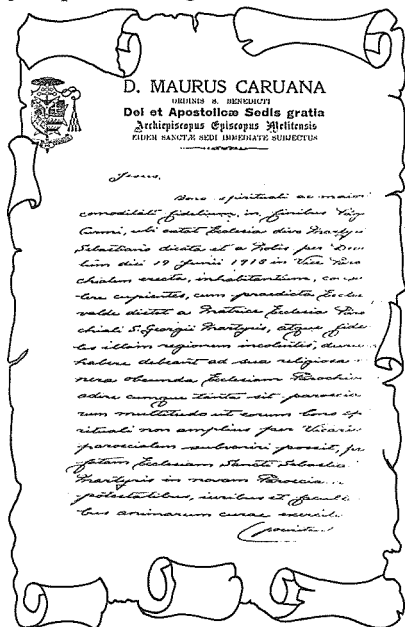 D. MAURUS CARUANA
ORDINIS S. BENEDICTI
Dei et Apostolicæ Sedis gratia
Archiepiscopus Episcopus Melitensis
EIDEM SANCTÆ SEDI IMMEDIATE SUBJECTUS
Jesus,
Bono spirituali ac maiori
commoditati fidelium, in finibus
ubi extat Ecclesia divo Martyri
Sebastiano dicata et a Nobis per
diei 19 Junii 1918 in Vice
chialem erecta, inhabitantium,
lere cupientes, cum praedicta
valde distet a Matrice Ecclesia
chiali S. Georgii Martyris, atque
les illam regionem incolentes,
habere debeant ad sua religiosa
nera obeunda Ecclesiam
adire cumque tanta sit
rum multitudo ut eorum bono
rituali non amplius per
paroecialem subveniri possit,
fatam Ecclesiam Sancti
Martyris in novam Paroecia
potestatibus, iuribus et
bus animarum curae